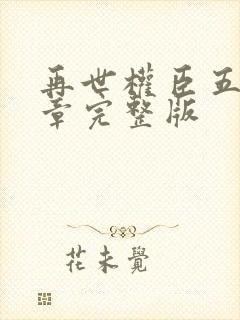 再世權臣五
章完整版
花未覺